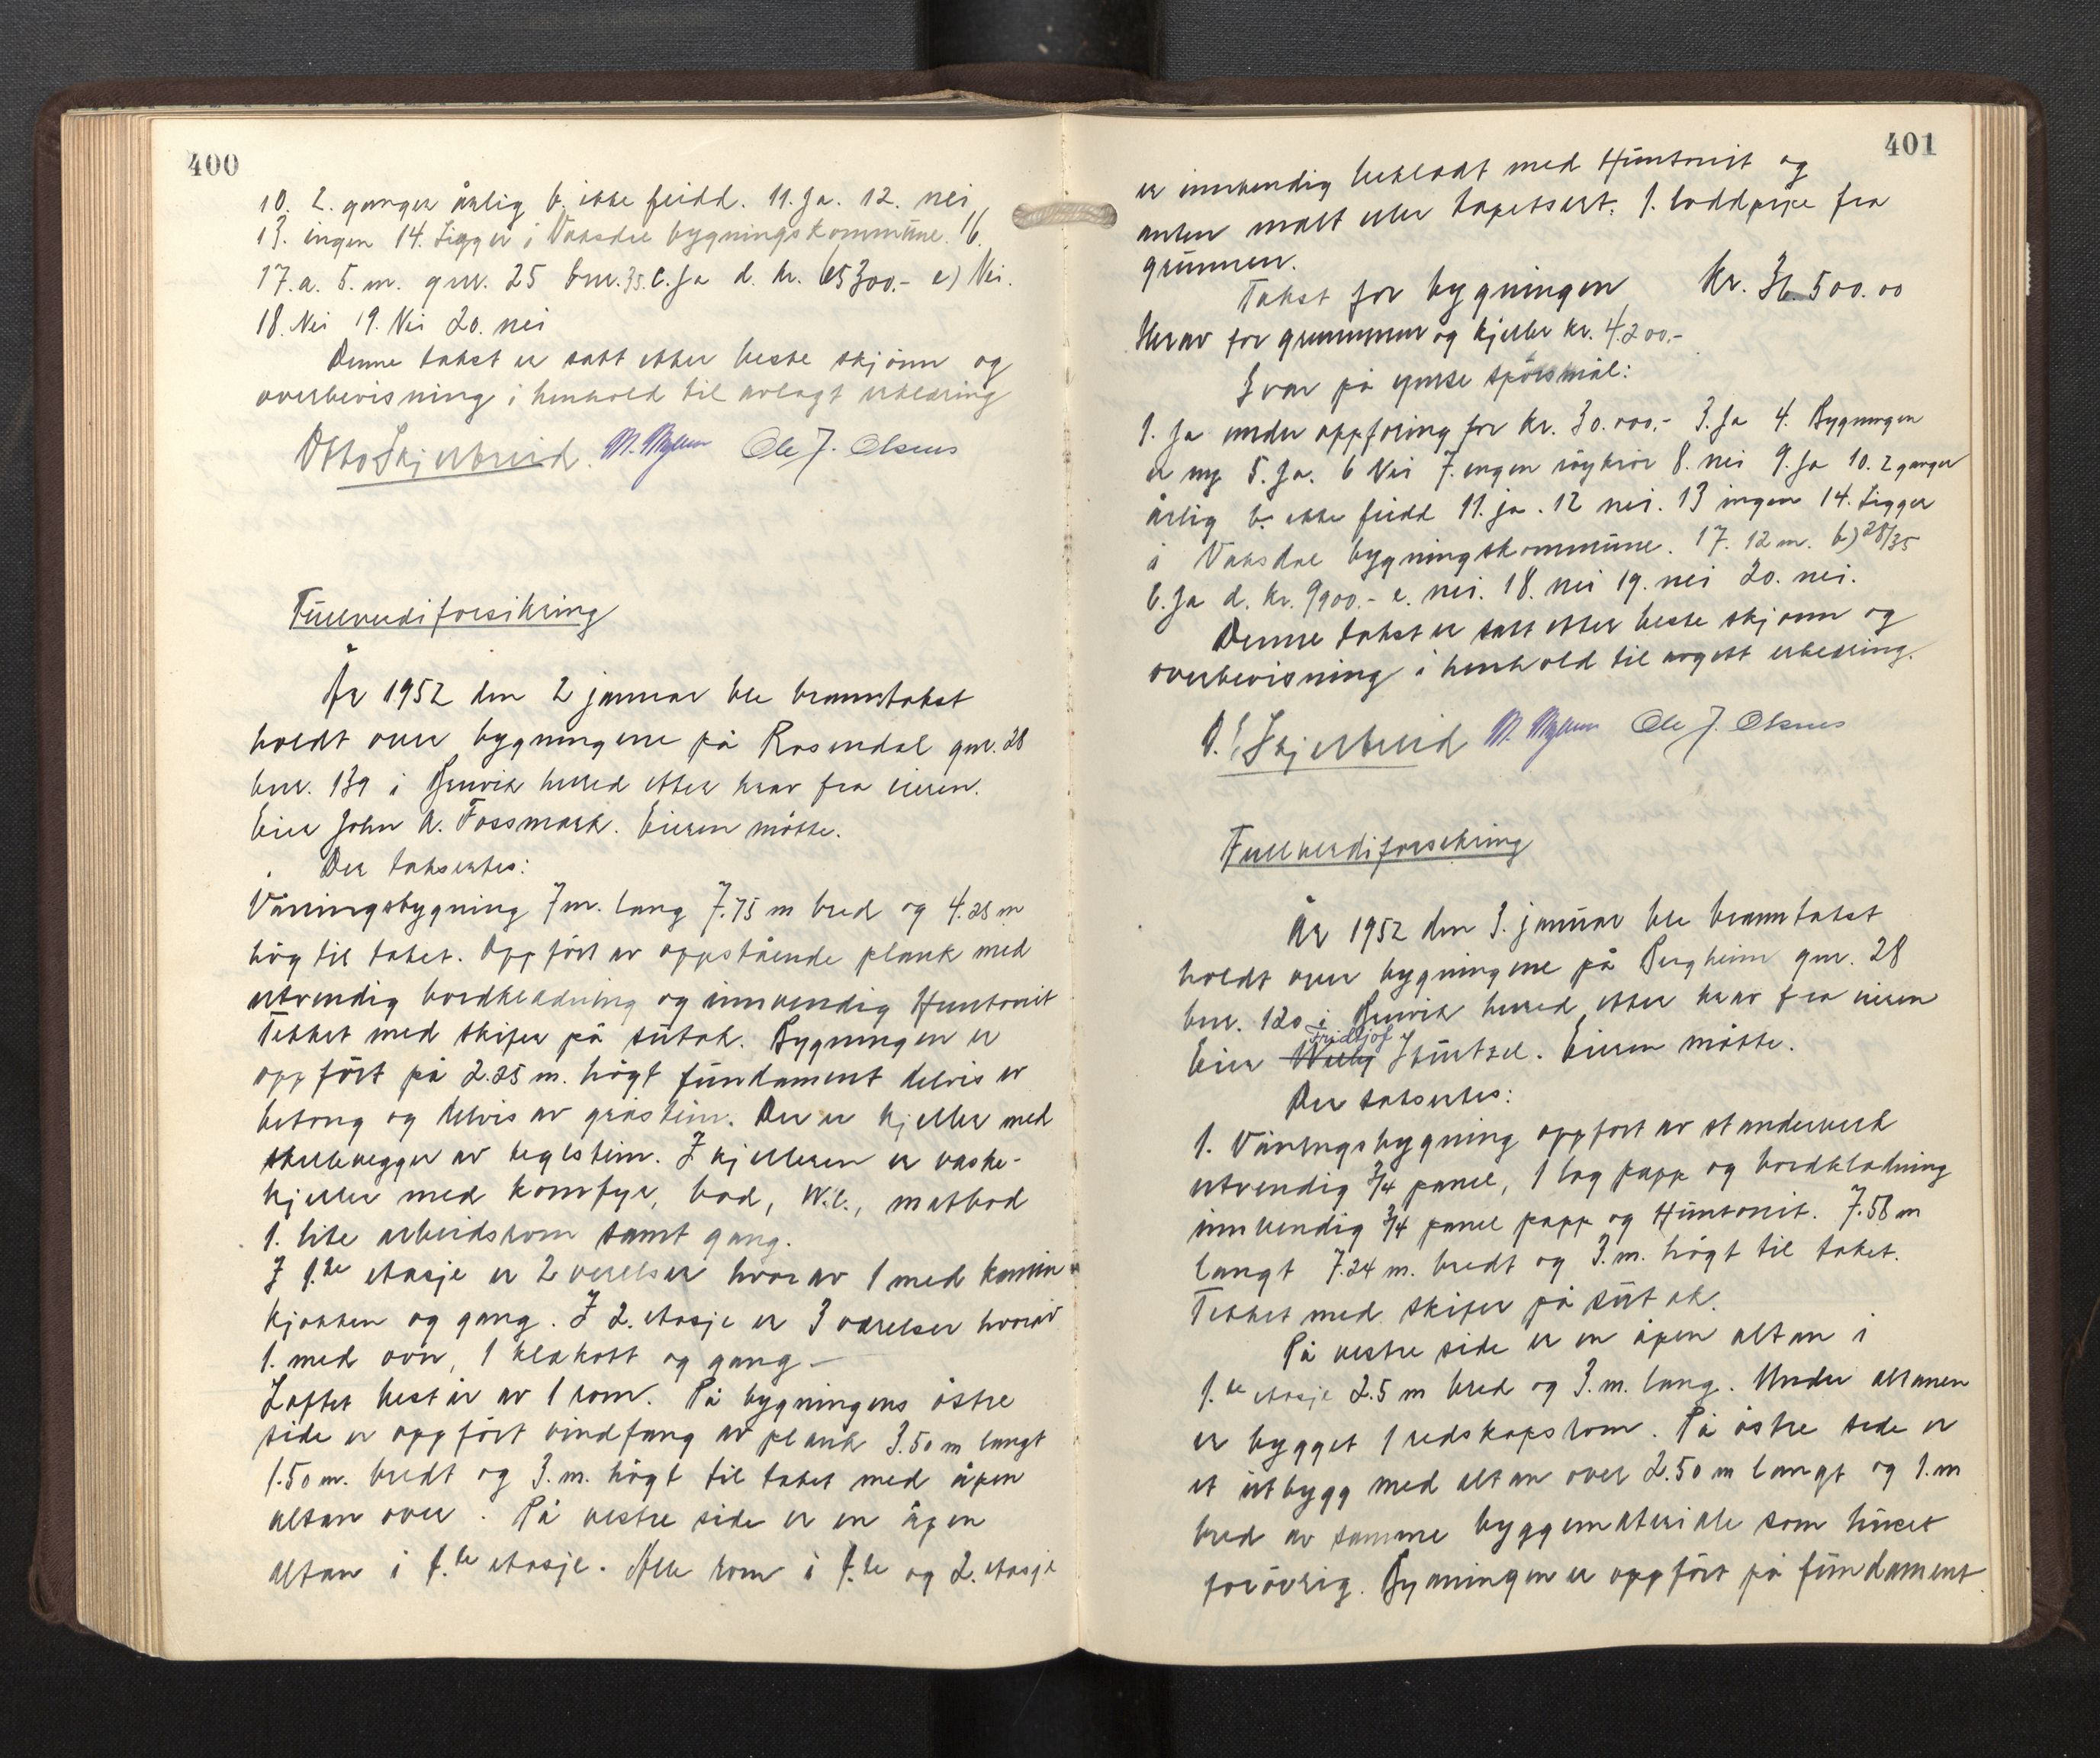 400
10. 2. ganger årlig b. ikke feidd. 11. Ja. 12. nei
13. ingen 14. Ligger i Vaksdal bygningskommune. 16.
17. a. 5. m. gnr. 25 bnr. 35. C. Ja d. kr. 65300.- e) Nei.
18. Nei 19. Nei 20. nei
Denne takst er satt etter beste skjönn og
overbevisning i henhold til avlagt erklæring
Otto Skjerbreid. M. Myhen Ole J. Olsnes
Fullverdiforsikring
År 1952 den 2 januar ble branntakst
holdt over bygningene på Rosendal gnr. 28
bnr. 139 i Bruvik herred etter krav fra eieren.
Eier John A. Fossmark. Eieren mötte.
Der taksertes:
Våningsbygning 7 m. lang 7.75 m bred og 4.25 m
hög til taket. Oppfört av oppstående plank med
utvendig bordkledning og innvendig Huntonit
Tekket med skifer på sutak. Bygningen er
oppfört på 2.25 m. högt fundament delvis av
betong og delvis av gråstein. Der er kjeller med
skillevegger av teglstein. I kjelleren er vaske-
kjeller med komfyr, bad, W.C., matbod
1. lite arbeidsrom samt gang.
I 1.ste etasje er 2 verelser hvorav 1 med kamin
kjökken og gang. I 2. etasje er 3 værelser hvorav
1. med ovn, 1 klekott og gang —
Loftet består av 1 rom. På bygningens östre
side er oppfört vindfang av plank 3.50 m langt
1.50 m. bredt og 3. m. högt til taket med åpen
altan over. På vestre side er en åpen
altan i 1.ste etasje. Alle rom i 1.ste og 2. etasje
401
er innvendig bekledt med Huntonit og
enten malt eller tapetsert. 1. loddpipe fra
grunnen.
Takst for bygningen kr. 36.500.00
Herav for grunnmur og kjeller kr. 4.200.-
Svar på ymse spörsmål:
1. Ja under oppföring for kr. 30.000.- 3. Ja 4. Bygningen
er ny 5. Ja. 6 Nei 7. ingen röykrör 8. nei 9. Ja 10. 2 ganger
årlig b. ikke feidd 11. ja. 12 nei. 13 ingen 14. Ligger
i Vaksdal bygningskommune. 17. 12 m. b) 28/35
C. Ja d. kr. 9900.- e. nei. 18. nei 19. nei 20. nei.
Denne takst er satt etter beste skjönn og
overbevisning i henhold til avgitt erklæring.
O. Skjerbreid M. Myhen Ole J. Olsnes
Fullverdiforsikring
År 1952 den 3. januar ble branntakst
holdt over bygningene på Bergheim gnr. 28
bnr. 120 i Bruvik herred etter krav fra eieren
Fridtjof
Eier Willy Stürtzel. Eieren mötte.
Der taksertes:
1. Våningsbygning oppfört av standerverk
utvendig 3/4 panel, 1 lag papp og bordkledning
innvendig 3/4 panel papp og Huntonit. 7.58 m
langt 7.24 m. bredt og 3. m. högt til taket.
Tekket med skifer på sutak.
På vestre side er en åpen altan i
1.ste etasje 2.5 m bred og 3. m. lang. Under altanen
er bygget 1 redskapsrom. På östre side er
et utbygg med altan over 2.50 m langt og 1. m
bred av samme byggemateriale som huset
forövrig. Bygningen er oppfört på fundament